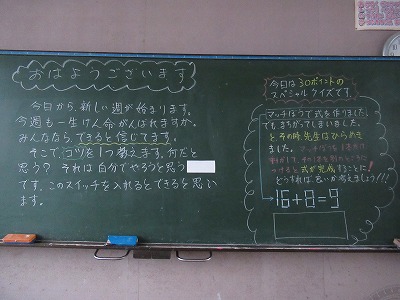 おはようございます
今日から、新しい週が始まります。
今週も一生けん命がんばれますか。
みんななら、できると信じてます。
そこで、コツを1つ教えます。何だと
思う？それは自分でやろうと思う
です。このスイッチを入れるとできると思い
ます。
今日は30ポイントの
スペシャルクイズです。
マッチぼうで式を作りました。
でも、まちがってしまいました。
と、その時、先生はひらめき
ました。マッチぼうを1本だけ
動かして、ちがう所に
つけると式が完成することに!
どうすれば良いか考えましょう!!!
16+8=9